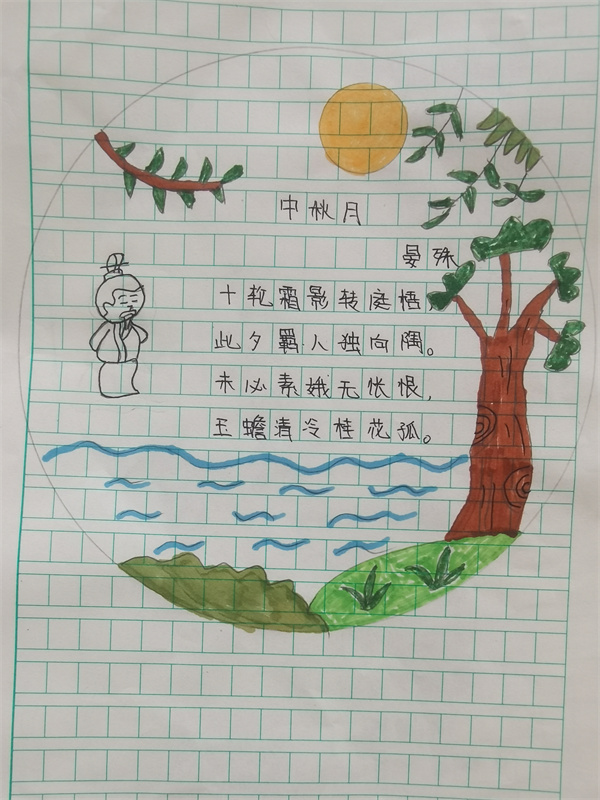 中秋月
晏殊
十轮霜影转庭悟,
此夕羁人独向隅。
未必素娥无怅恨,
玉蟾清冷桂花孤。